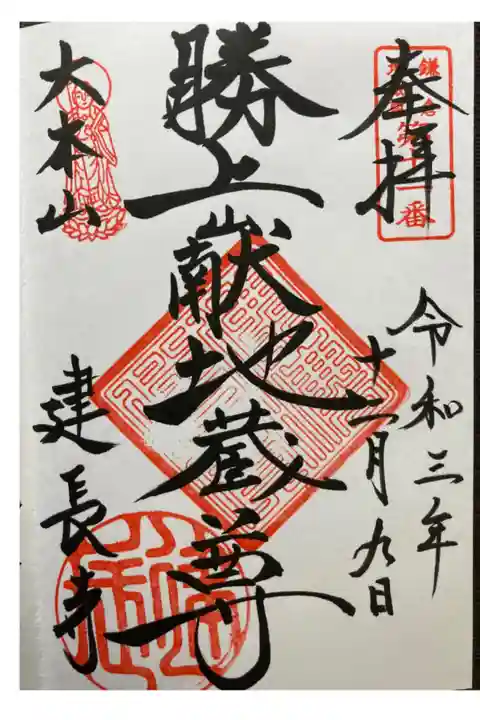 奉拝
鎌倉
番
令和三年
十一月九日
勝上献地蔵尊
大本山
建長寺